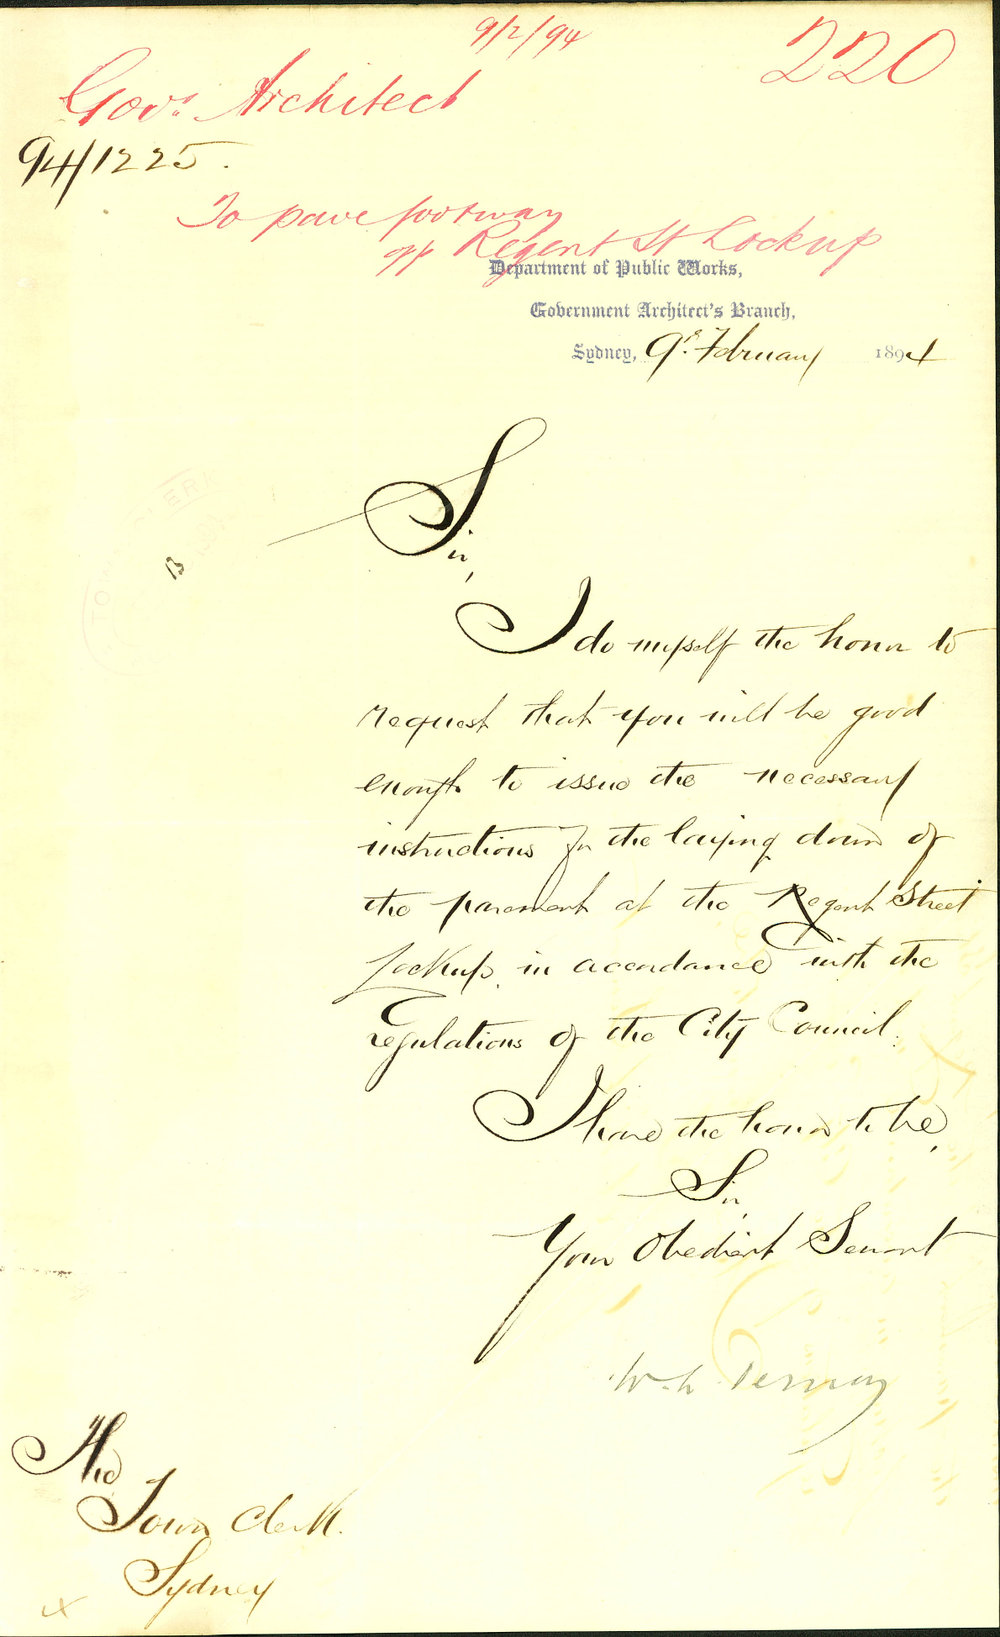 9/2/94
220
Govt. Architect
94/1225.
To pave footway
opp Regent St Lockup
Department of Public Works,
Government Architect's Branch,
Sydney, 9th February 1894
Sir,
I do myself the honor to
request that you will be good
enough to issue the necessary
instructions for the laying down of
the pavement at the Regent Street
Lockup, in accordance with the
regulations of the City Council.
I have the honor to be,
Sir,
Your Obedient Servant
The
Town Clerk.
Sydney